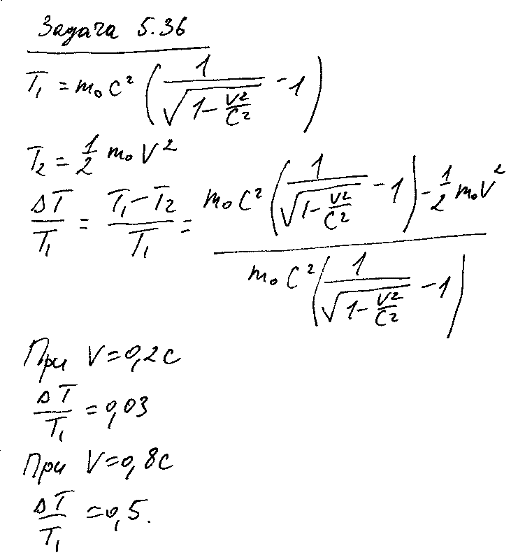 Задача 5.36
T₁ = m₀c² (1/√(1 - v²/c²) - 1)
T₂ = 1/2 m₀v²
ΔT/T₁ = (T₁ - T₂)/T₁ = (m₀c² (1/√(1 - v²/c²) - 1) - 1/2 m₀v²)/(m₀c² (1/√(1 - v²/c²) - 1))
При V = 0,2c
ΔT/T₁ = 0,03
При V = 0,8c
ΔT/T₁ = 0,5.